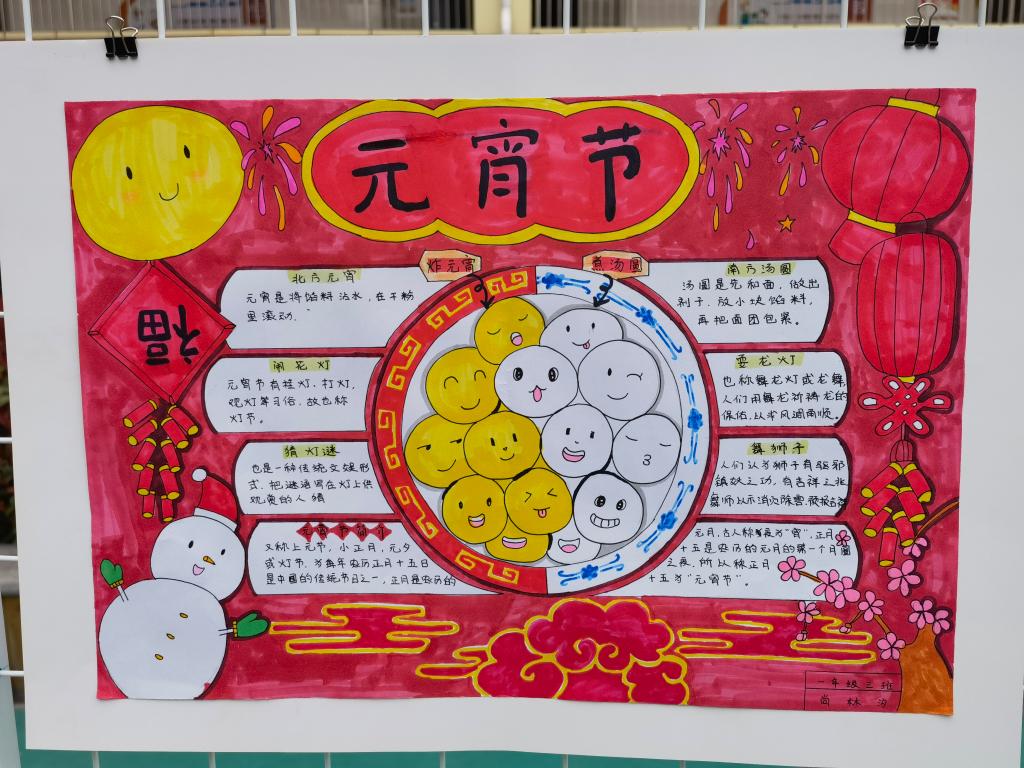 元宵节
炸元宵
煮汤圆
福
北方元宵
元宵是将馅料沾水，在干粉
里滚动。
闹花灯
元宵节有挂灯、打灯,
观灯等习俗，故也称
灯节。
猜灯谜
也是一种传统文娱形
式，把谜语写在灯上供
观赏的人猜
元宵节简介
又称上元节，小正月，元夕
或灯节，为每年农历正月十五日
是中国的传统节日之一，正月是农历的
南方汤圆
汤圆是先和面，做出
剂子，放小块馅料，
再把面团包紧。
耍龙灯
也称舞龙灯或龙舞,
人们用舞龙祈祷龙的
保佑，以求风调雨顺。
舞狮子
人们认为狮子有驱邪
镇妖之功，有吉祥之兆
舞狮以示消灾除害，预报吉祥
元月，古人称夜为"宵"，正月
十五是农历的元月的第一个月圆
之夜，所以称正月
十五为"元宵节"。
一年级三班
尚林